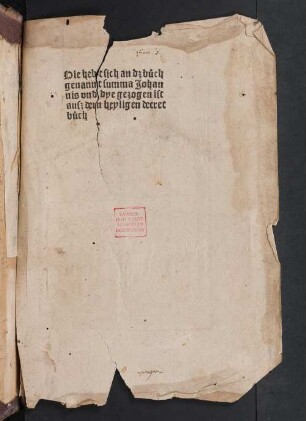 Hie hebt sich an dz bůch
genannt summa Johan
nis vnd dye gezogen ist
ausz dem heyligen decret
bůch